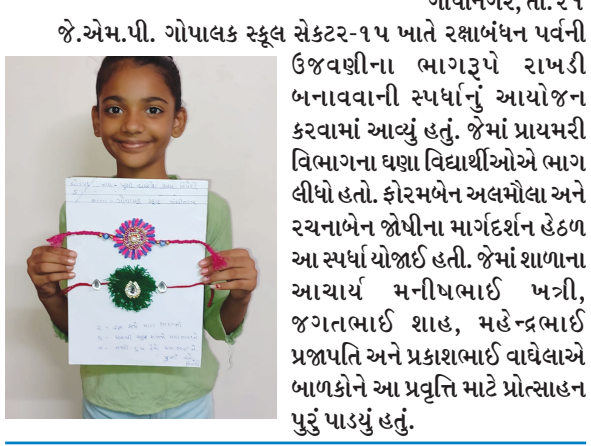 તા.૨૧
જે.એમ.પી. ગોપાલક સ્કૂલ સેકટર-૧૫ ખાતે રક્ષાબંધન પર્વની
ઉજવણીના ભાગરૂપે રાખડી
બનાવવાની સ્પર્ધાનું આયોજન
કરવામાં આવ્યું હતું. જેમાં પ્રાયમરી
વિભાગના ઘણા વિદ્યાર્થીઓએ ભાગ
લીધો હતો. ફોરમબેન અલમૌલા અને
રચનાબેન જોષીના માર્ગદર્શન હેઠળ
આ સ્પર્ધા યોજાઈ હતી. જેમાં શાળાના
આચાર્ય મનીષભાઈ ખત્રી,
જગતભાઈ શાહ, મહેન્દ્રભાઈ
પ્રજાપતિ અને પ્રકાશભાઈ વાઘેલાએ
બાળકોને આ પ્રવૃત્તિ માટે પ્રોત્સાહન
પુરું પાડયું હતું.